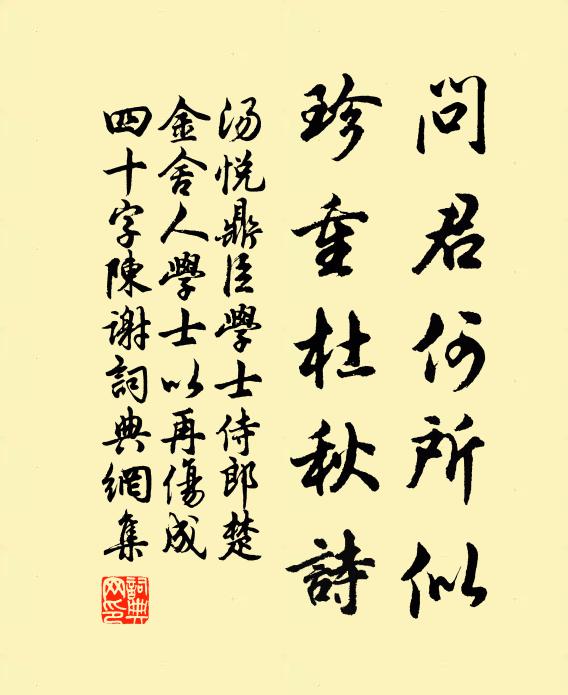 問君何所似
珍重杜秋詩
汤悅鼎臣學士侍郎楚
金舍人學士以再傷成
四十字陳謝詞典網集
詞典网印